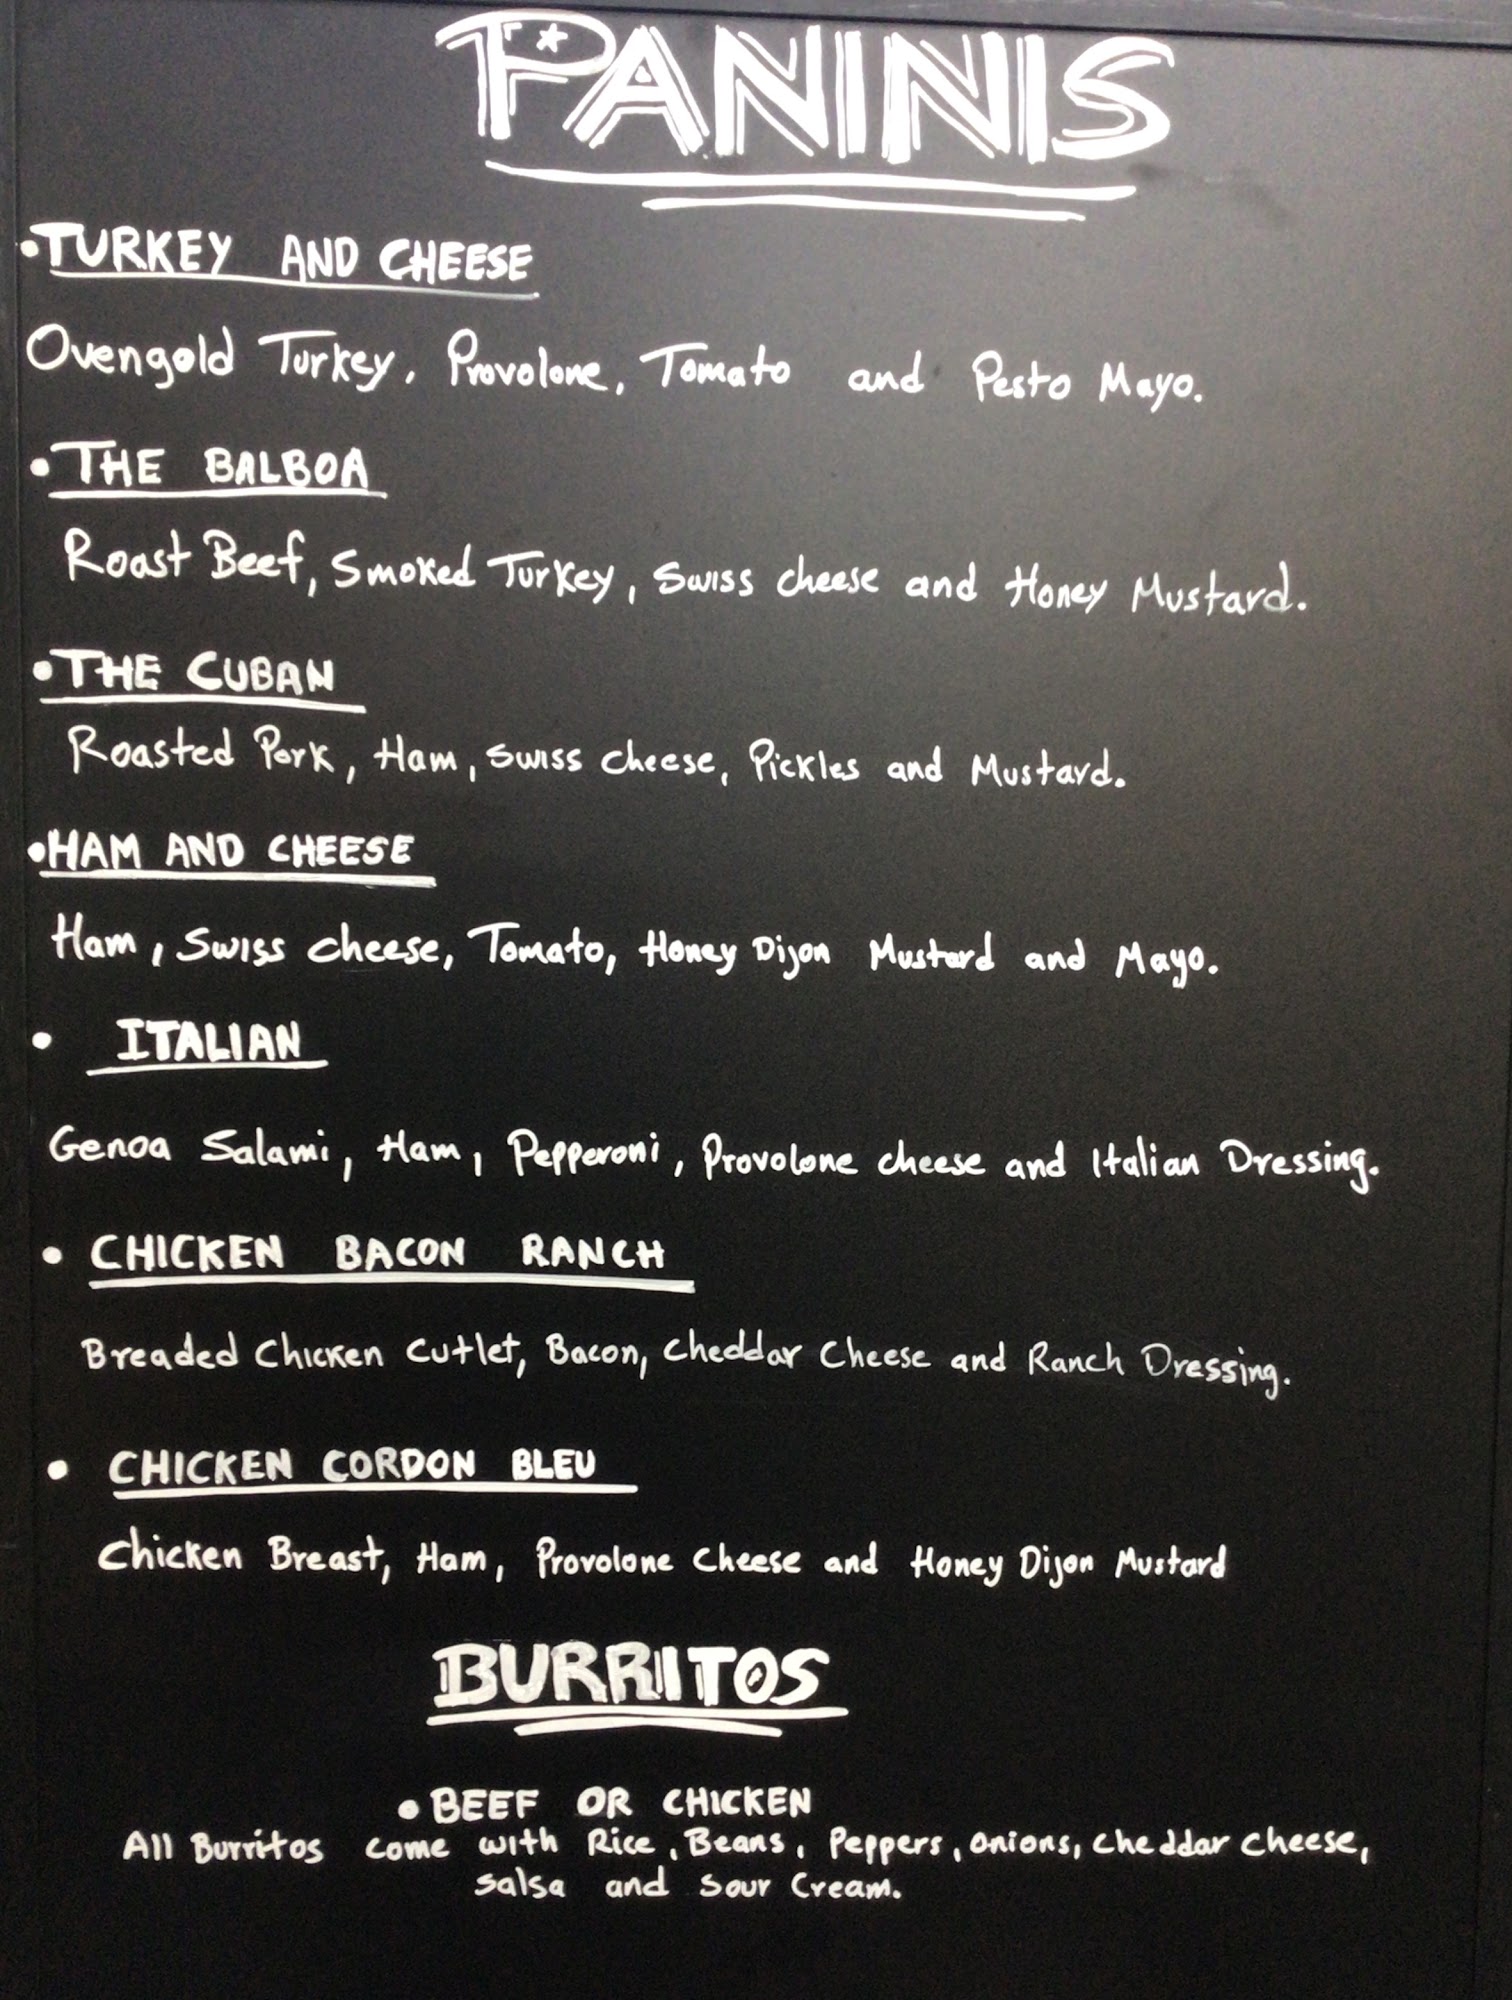 PANINIS
•TURKEY AND CHEESE
Ovengold Turkey, Provolone, Tomato and Pesto Mayo.
•THE BALBOA
Roast Beef, Smoked Turkey, Swiss cheese and Honey Mustard.
•THE CUBAN
Roasted Pork, Ham, Swiss cheese, Pickles and Mustard.
•HAM AND CHEESE
Ham, Swiss cheese, Tomato, Honey Dijon Mustard and Mayo.
• ITALIAN
Genoa Salami, Ham, Pepperoni, Provolone cheese and Italian Dressing.
• CHICKEN BACON RANCH
Breaded Chicken Cutlet, Bacon, Cheddar Cheese and Ranch Dressing.
• CHICKEN CORDON BLEU
Chicken Breast, Ham, Provolone Cheese and Honey Dijon Mustard
BURRITOS
• BEEF OR CHICKEN
All Burritos come with Rice, Beans, Peppers, onions, cheddar cheese,
salsa and sour cream.